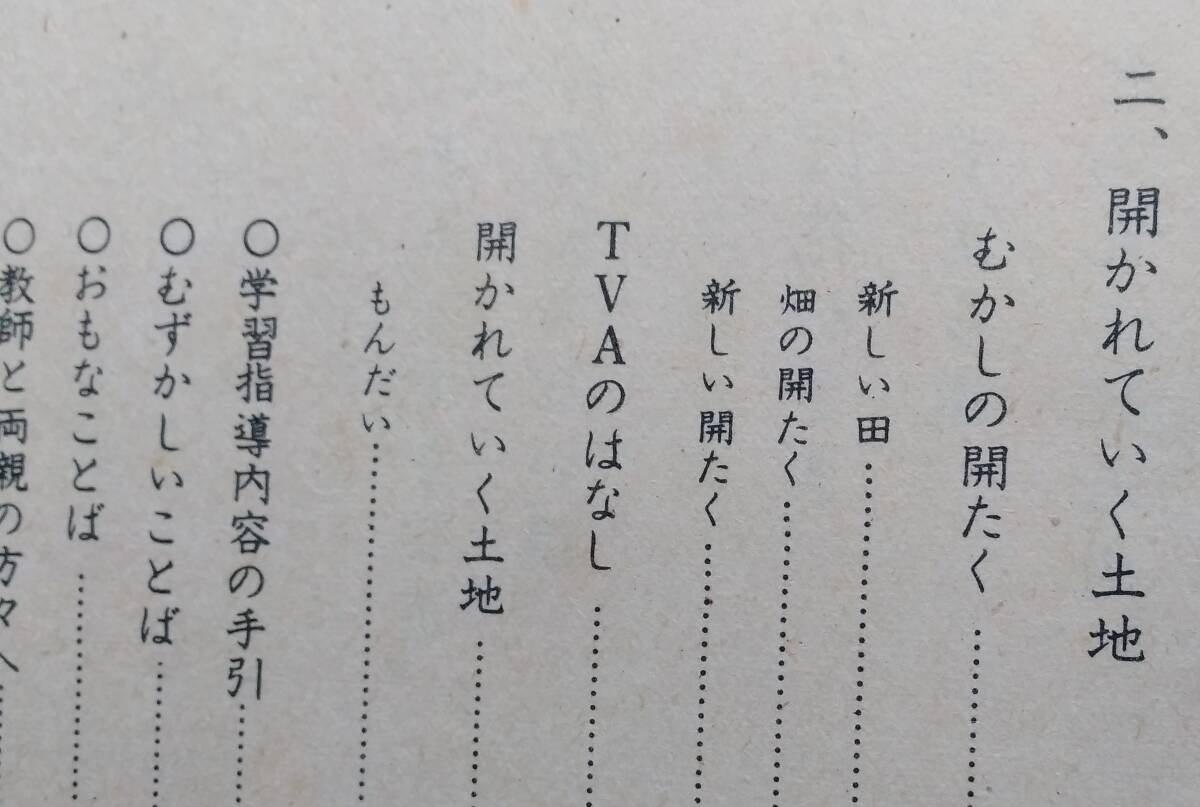 二、開かれていく土地
むかしの開たく……………
新しい田……………
畑の開たく……………
新しい開たく……………
TVAのはなし……………
開かれていく土地……………
もんだい……………
○学習指導内容の手引……………
○むずかしいことば……………
○おもなことば……………
○教師と両親の方々へ……………